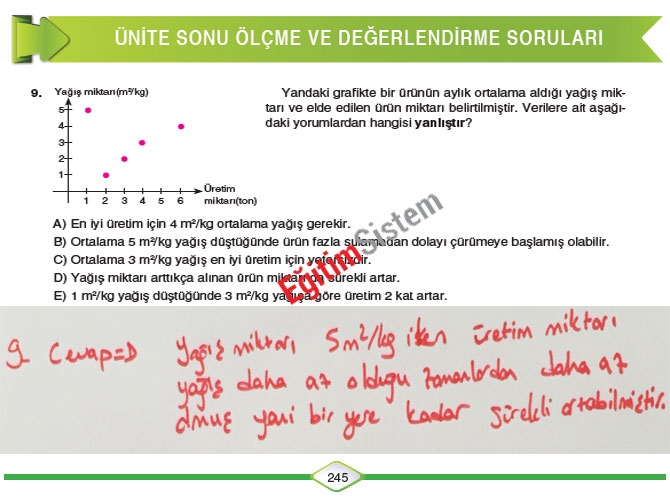 ÜNİTE SONU ÖLÇME VE DEĞERLENDİRME SORULARI
9.
Yağış miktarı(m²/kg)
5
4
3
2
1
1 2 3 4 5 6
Üretim
miktarı(ton)
Yandaki grafikte bir ürünün aylık ortalama aldığı yağış mik-
tarı ve elde edilen ürün miktarı belirtilmiştir. Verilere ait aşağı-
daki yorumlardan hangisi yanlıştır?
A) En iyi üretim için 4 m²/kg ortalama yağış gerekir.
B) Ortalama 5 m²/kg yağış düştüğünde ürün fazla sulamadan dolayı çürümeye başlamış olabilir.
C) Ortalama 3 m²/kg yağış en iyi üretim için yetersizdir.
D) Yağış miktarı arttıkça alınan ürün miktarı da sürekli artar.
E) 1 m²/kg yağış düştüğünde 3 m²/kg yağışa göre üretim 2 kat artar.
EğitimSistem
9 Cevap=D Yağış miktarı 5m²/kg iken üretim miktarı
yağış daha az olduğu zamanlardan daha az
olmuş yani bir yere kadar sürekli artabilmiştir.
245